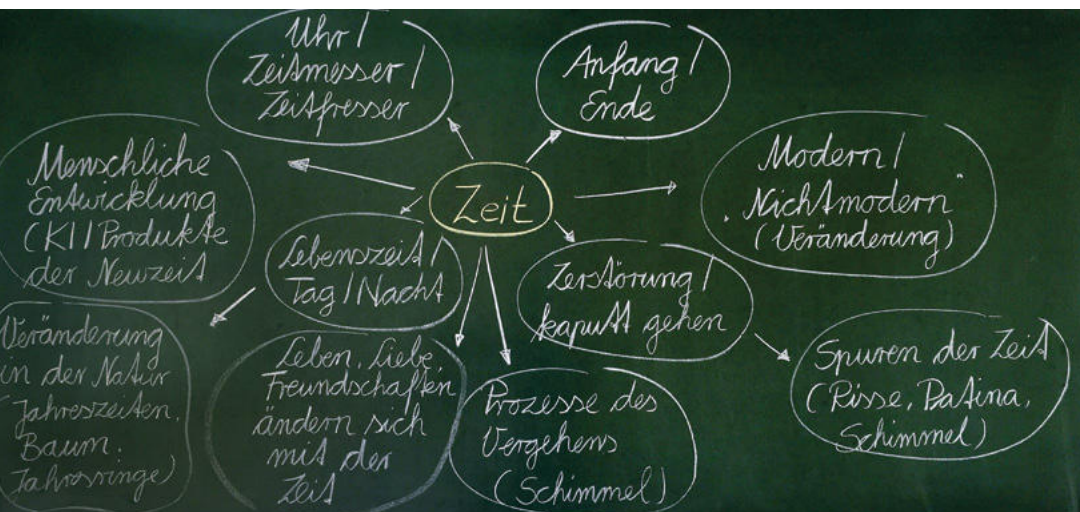 Uhr /
Zeitmesser /
Zeitfresser
Anfang /
Ende
Menschliche
Entwicklung
(KI / Produkte
der Neuzeit
Zeit
Modern /
"Nichtmodern"
(Veränderung)
Lebenszeit /
Tag / Nacht
Zerstörung /
kaputt gehen
Veränderung
in der Natur
(Jahreszeiten,
Baum,
Jahresringe)
Leben, Liebe,
Freundschaften
ändern sich
mit der
Zeit
Prozesse des
Vergehens
(Schimmel)
Spuren der Zeit
(Risse, Patina,
Schimmel)